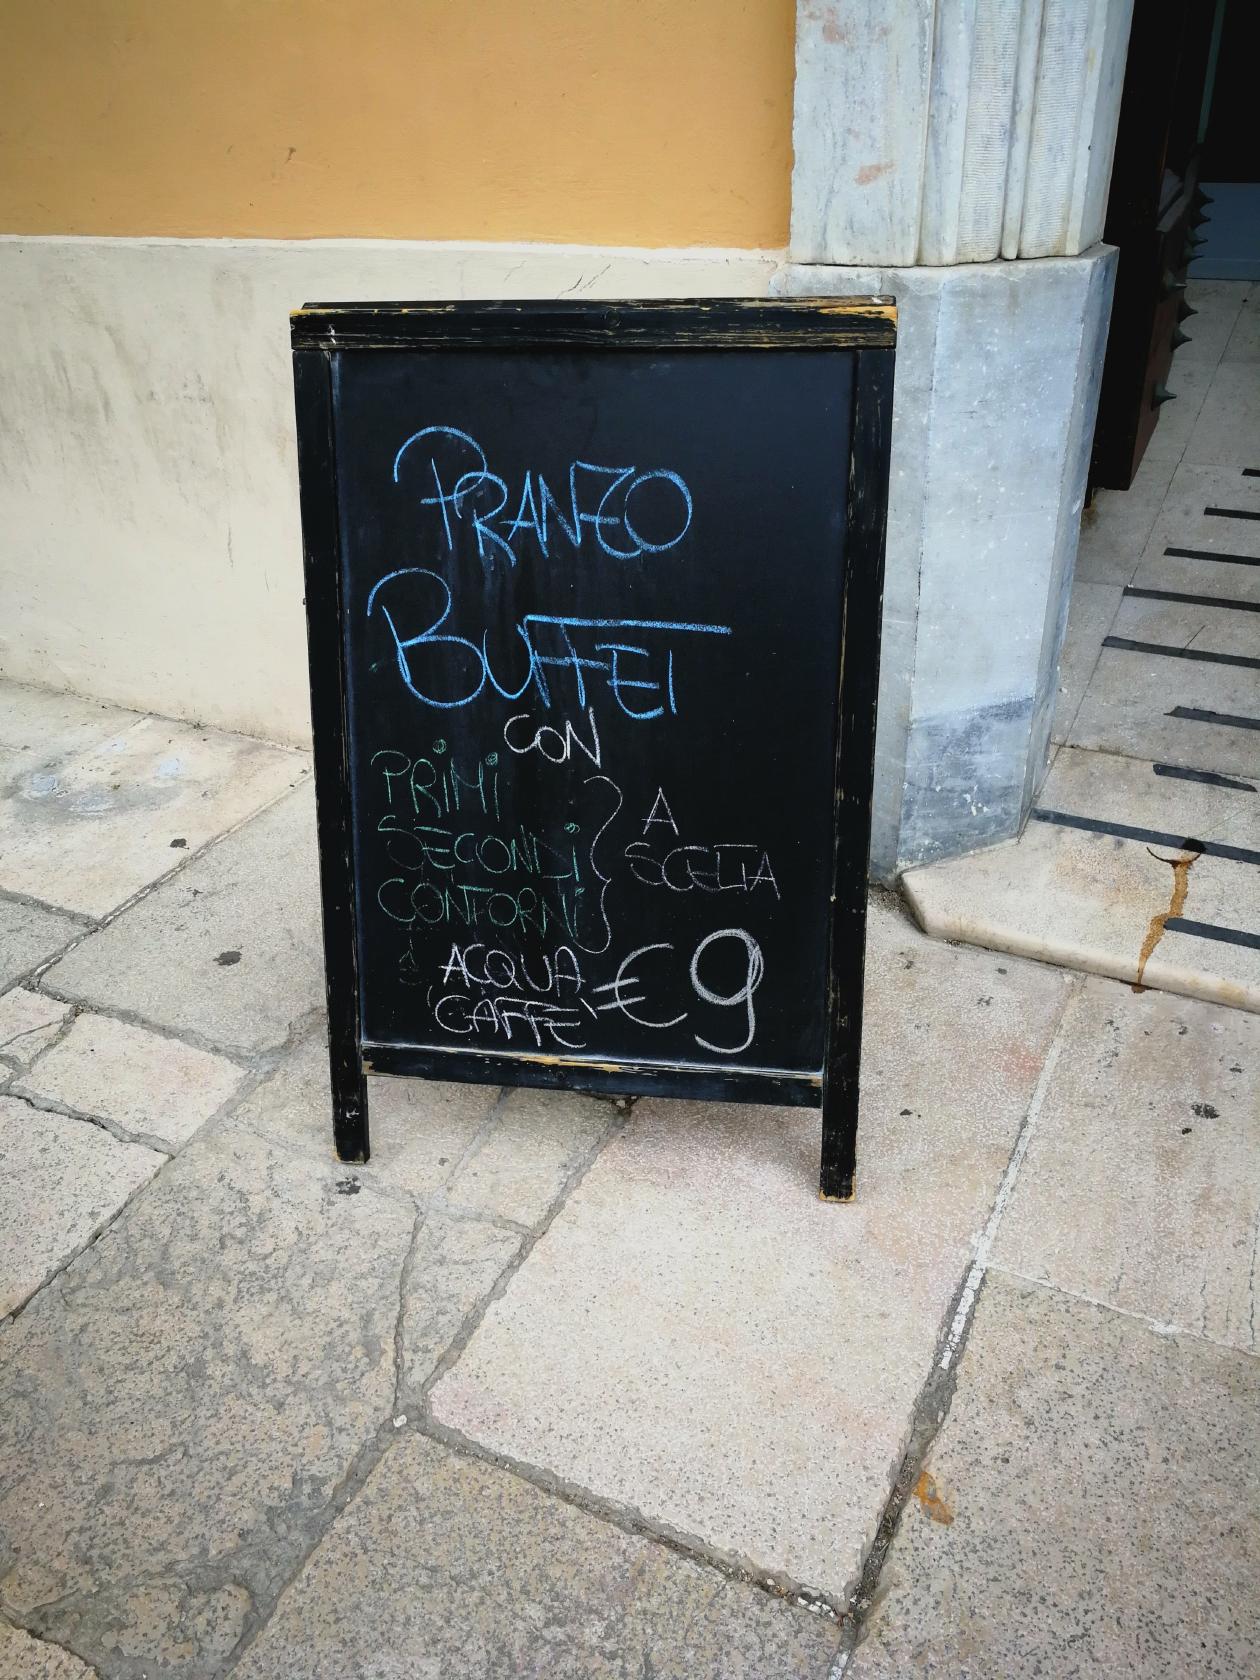 PRANZO
BUFFET
CON
PRIMI
SECONDI
CONTORNI
A
SCELTA
ACQUA
CAFFE'
€ 9